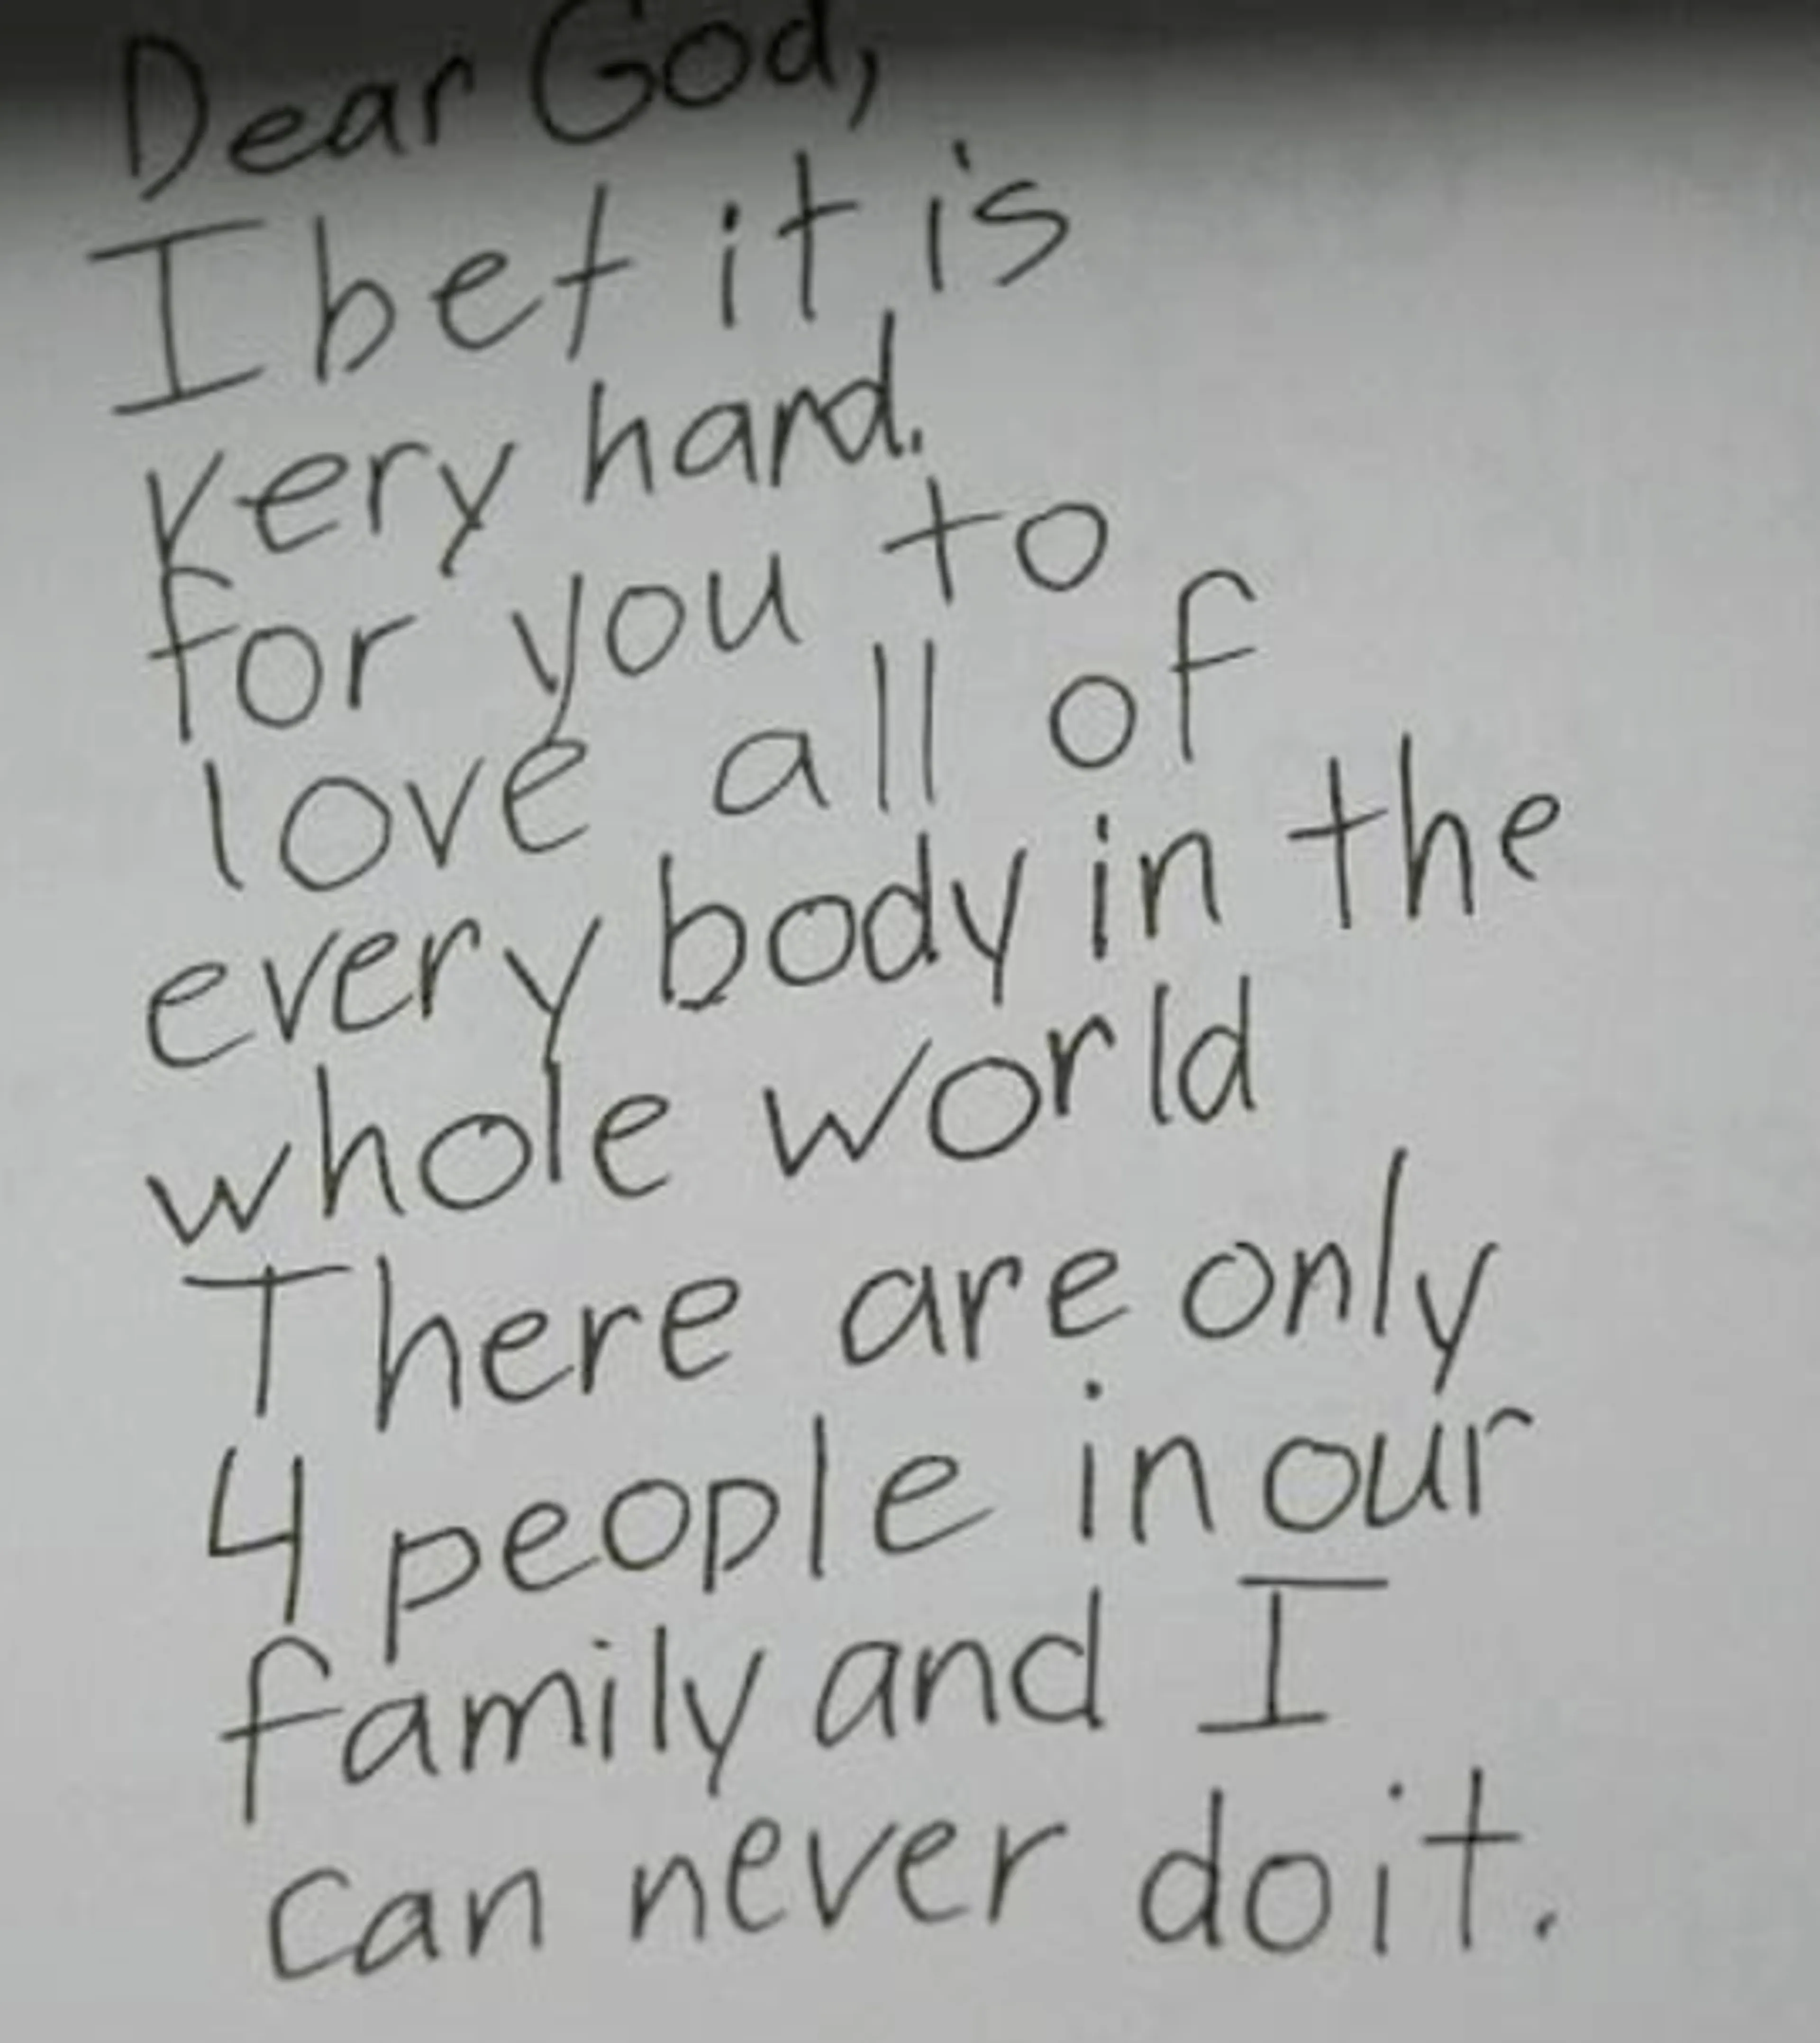 Dear God,
I bet it is
very hard.
for you to
love all of
every body in the
whole world
There are only
4 people in our
family and I
can never do it.